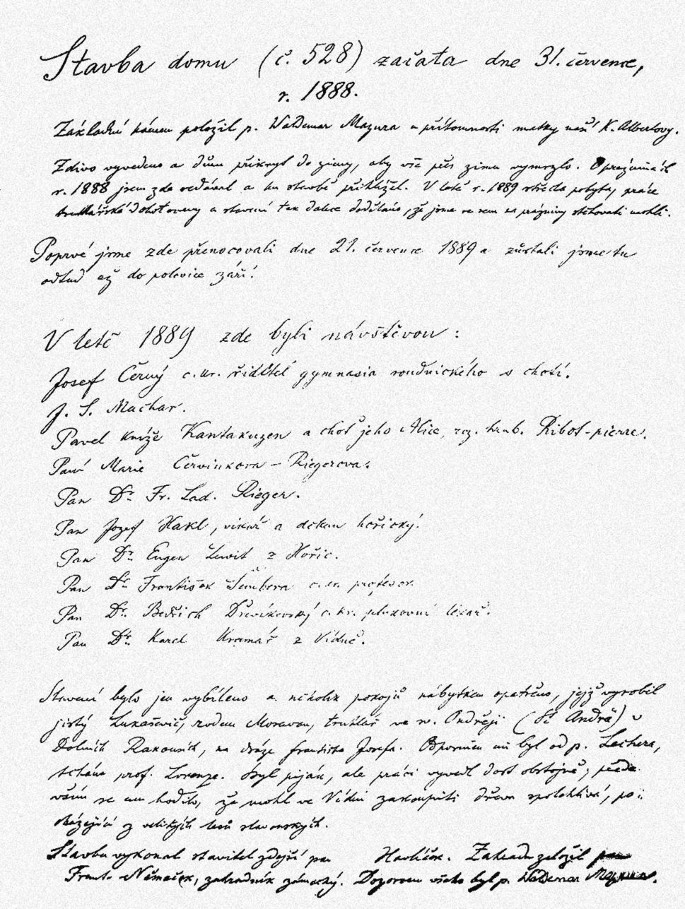 Stavba domu (č. 528) začata dne 31. července,
r. 1888.
Základní kámen položil p. Waldemar Mazura u přítomnosti matky naší K. Albertovy.
Zdivo vyvedeno a dům přikryt do zimy, aby vše přes zimu vymrzlo. O prázninách
r. 1888 jsem zde a ku stavbě přihlížel. V létě r. 1889 střecha pobyta, práce
truhlářské dohotoveny a stavení tak dalece doděláno, že jsme se sem na prázniny stěhovati mohli.
Poprvé jsme zde přenocovali dne 21. července 1889 a zůstali jsme tu
odtud až do polovice září.
V letě 1889 zde byli návštěvou:
Josef Černý c. kr. řiditel gymnasia roudnického s chotí.
J. S. Machar.
Pavel kníže Kantakuzen a choť jeho Alice, roz. hrab. Ribot-pierre.
Paní Marie Červinková-Riegerová.
Pan Dr. Fr. Lad. Rieger.
Pan Josef Hakl, vikář a děkan hořický.
Pan Dr. Eugen Lewit z Hořic.
Pan Dr. František Šembera c. kr. profesor.
Pan Dr. Bedřich c. kr. plukovní lékař.
Pan Dr. Karel Kramář z Vídně.
Stavení bylo jen vybíleno a několik pokojů nábytkem opatřeno, jejž vyrobil
jistý Lukašovič, rodem Moravan, truhlář ve sv. Ondřeji (St. Andrä) v
Dolních Rakousích, na dráze Františka Josefa. Odporučen mi byl od p. Lechera,
tchána prof. Lorenze. Byl piják, ale práci vyvedl dost obstojně; přede
vším se mu hodilo, že mohl ve Vídni zakoupiti dřevo spolehlivé, po-
cházející z velikých lesů slavonských.
Stavbu vykonal stavitel zdejší pan Havlíček. Zahradu založil
Frant. Němeček, zahradník zámecký. Dozorcem všeho byl p. Waldemar Mazura.